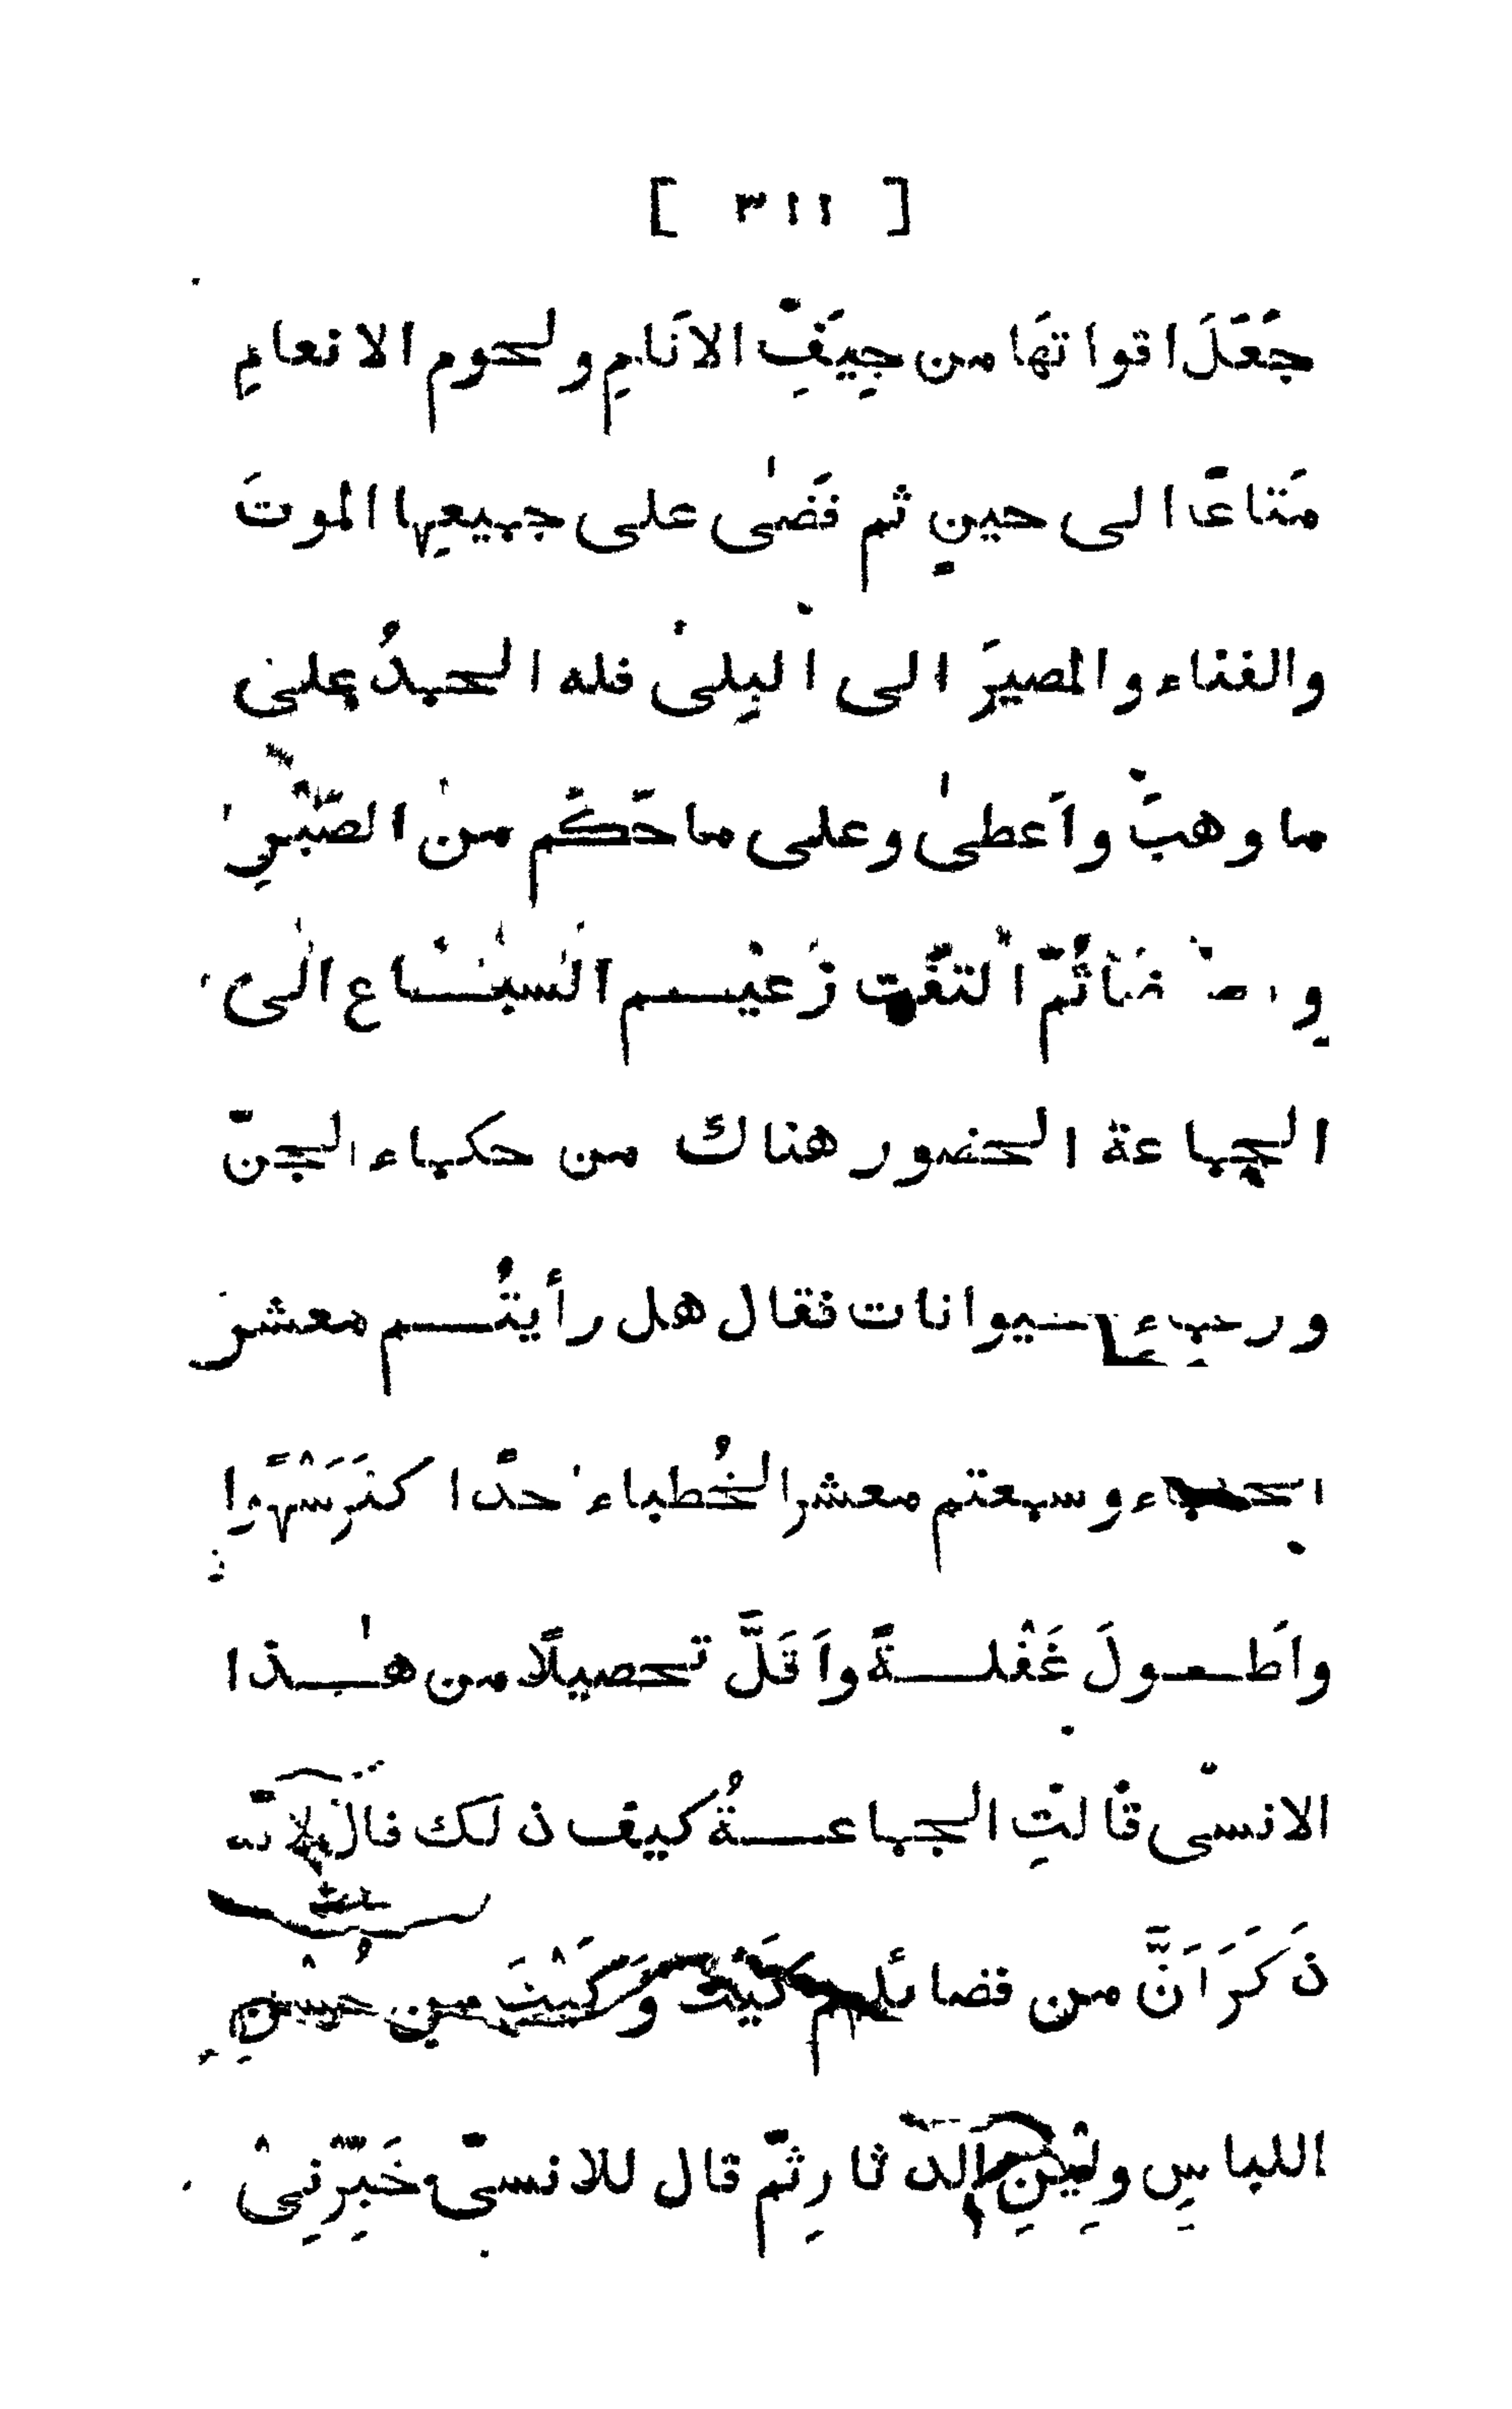 [ ٣١١ ]
جَعَلَ اقواتهَا من جِيَفِ الانَامِ ولحوم الانعامِ
مَتاعًا الى حينٍ ثم قَضىٰ على جميعِها الموتَ
والفناء والمصيرَ الى البِلىٰ فله الحمدُ على
ما وهبَ واَعطىٰ وعلى ما حَكَم من الصَبْرِ
ثُمّ التفَت زَعيم السباع الى
الجماعة الحضور هناك من حكماء الجنّ
فقال هل رأيتُم معشر
وسمعتم معشر الخُطباء احدًا اكثَرَ سَهْوًا
واَطولَ غَفْلةً واَقَلَّ تحصيلًا من هٰذا
الانسىّ قالتِ الجماعةُ كيف ذلك قال لانّه
ذَكَرَ اَنَّ من فضائلهم كَيْتَ وَكَيْتَ من حُسْنِ
اللباسِ ولِيْنِ الدثارِ ثمّ قال للانسىّ خَبِّرْنِىْ